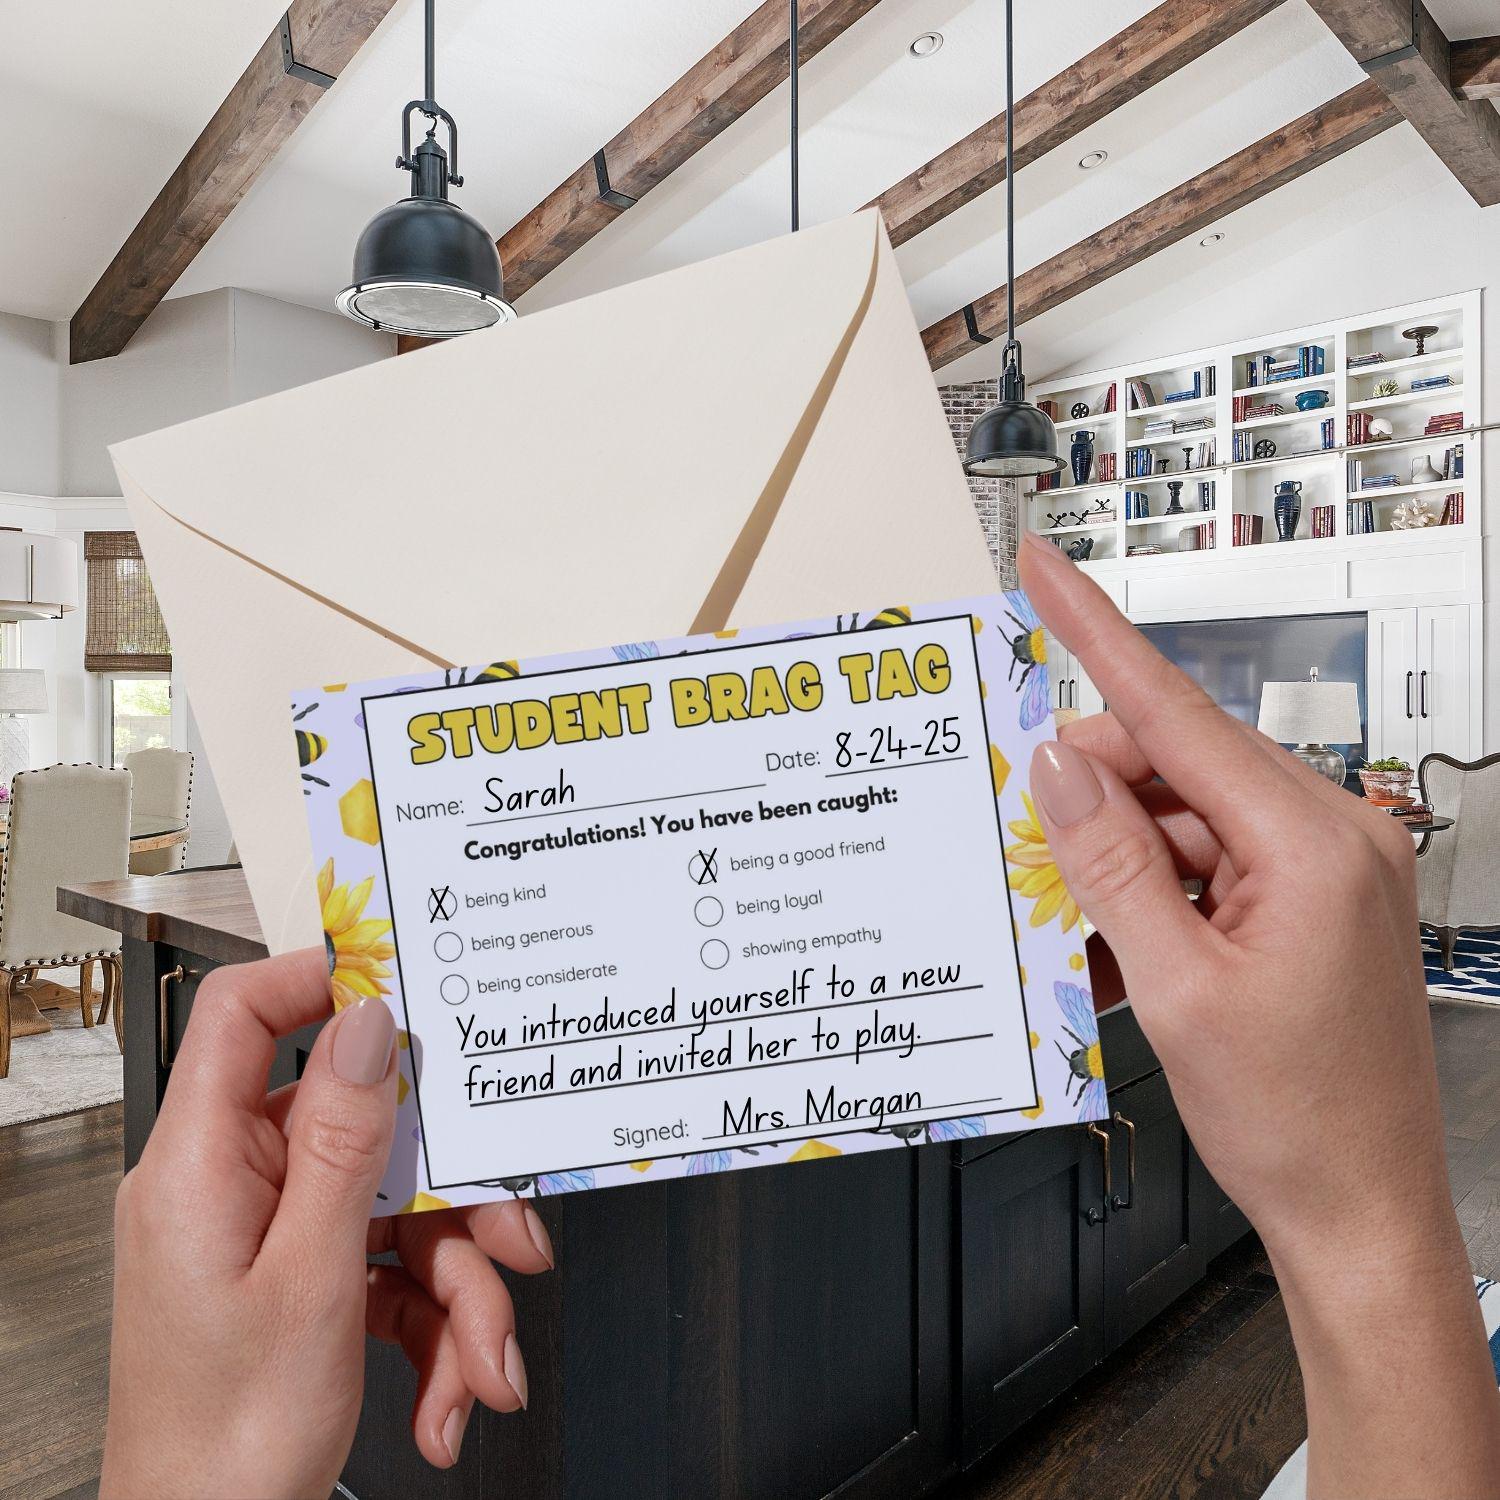 STUDENT BRAG TAG
Name: Sarah Date: 8-24-25
Congratulations! You have been caught:
X being kind X being a good friend
being generous being loyal
being considerate showing empathy
You introduced yourself to a new
friend and invited her to play.
Signed: Mrs. Morgan